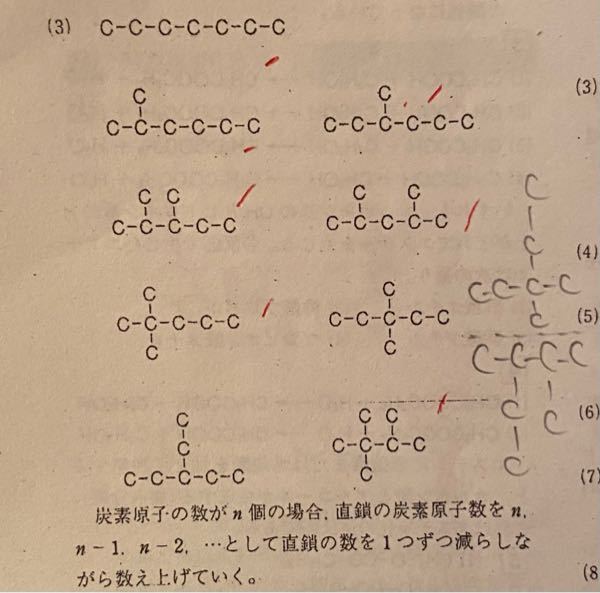 (3) C-C-C-C-C-C-C
(3)
C
C-C-C-C-C-C
C
C-C-C-C-C-C
C C
C-C-C-C-C
C C
C-C-C-C-C
C
C
C-C-C-C
C
(4)
C
C-C-C-C-C
C
C
C-C-C-C-C
C
(5)
C-C-C-C
C C
C
(6)
C
C
C-C-C-C-C
C C
C-C-C-C
C
(7)
炭素原子の数が n 個の場合, 直鎖の炭素原子数を n,
n-1, n-2, …として直鎖の数を1つずつ減らしな
がら数え上げていく。
(8